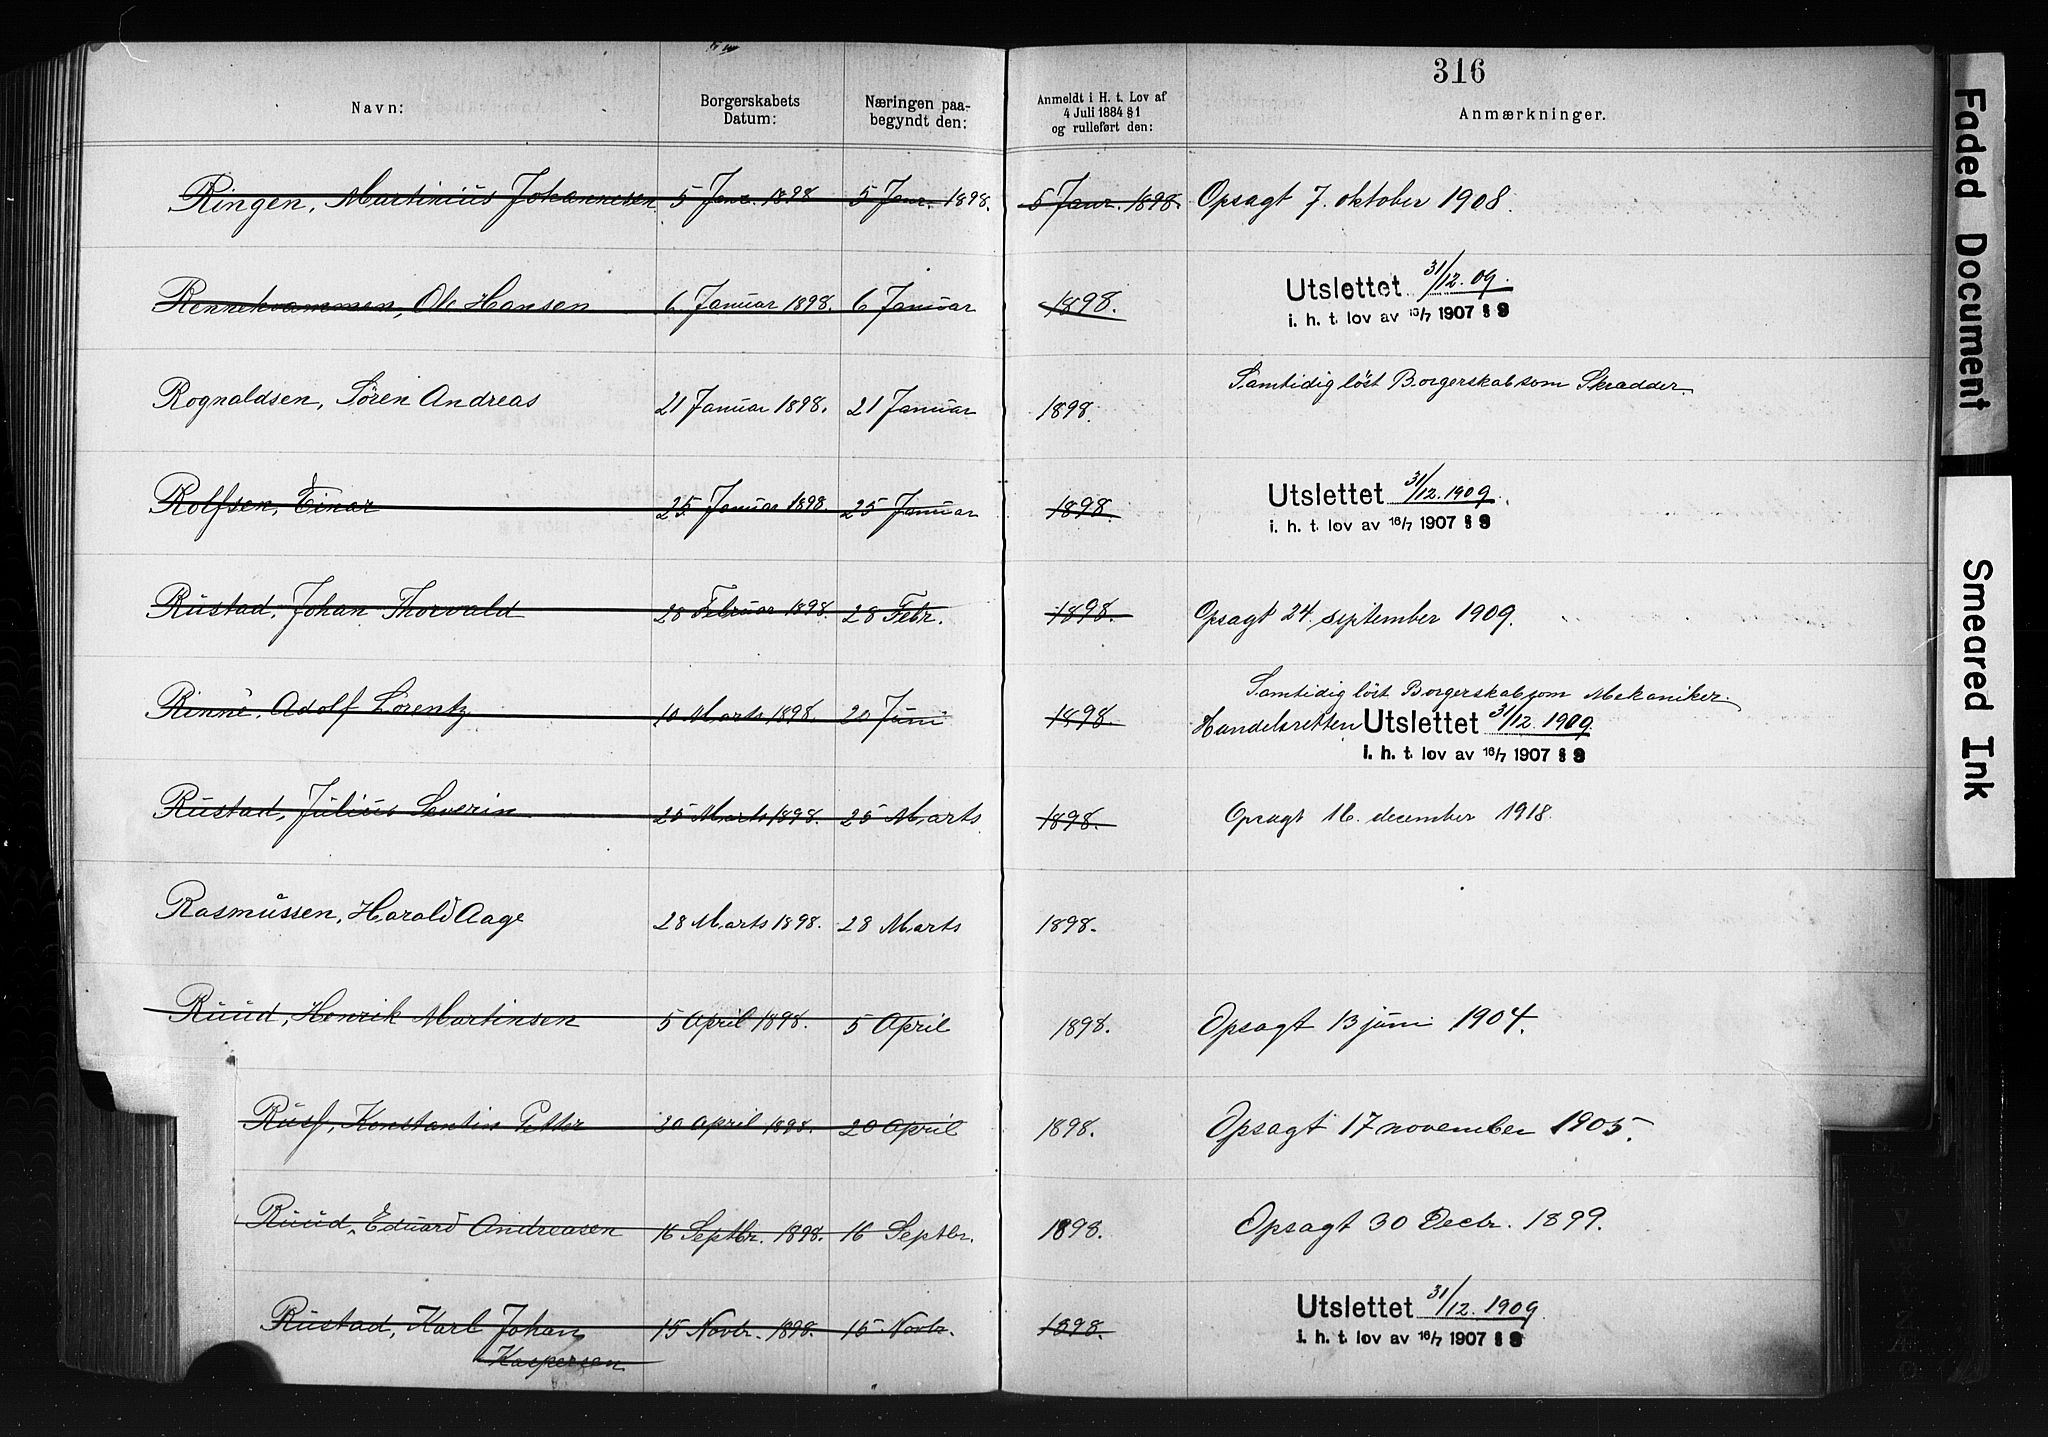 316
Navn: Borgerskabets Datum: Næringen paa-begyndt den: Anmeldt i H. t. Lov af 4 Juli 1884 § 1 og rulleført den: Anmærkninger.
Ringen, Martinius Johannesen 5 Janr. 1898 5 Janr. 1898. 5 Janr. 1898. Opsagt 7. oktober 1908.
Rennekvammen, Ole Hansen 6 Januar 1898. 6 Januar 1898. Utslettet 31/12. 09.
i. h. t. lov av 16/7 1907 § 9
Rognaldsen, Sören Andreas 21 Januar 1898. 21 Januar 1898. Samtidig löst Borgerskab som Skradder.
Rolfsen, Einar 25 Januar 1898. 25 Januar 1898. Utslettet 31/12. 1909.
i. h. t. lov av 16/7 1907 § 9
Rustad, Johan Thorvald 28 Februar 1898. 28 Febr. 1898. Opsagt 24. september 1909.
Samtidig löst Borgerskab som Mekaniker.
Rinne, Adolf Lorentz 10 Marts 1898. 20 Juni 1898. Handelsretten Utslettet 31/12. 1909.
i. h. t. lov av 16/7 1907 § 9
Rustad, Julius Severin 25 Marts 1898. 25 Marts. 1898. Opsagt 16. december 1918.
Rasmussen, Harald Aage 28 Marts 1898. 28 Marts 1898.
Ruud, Henrik Martinsen 5 April 1898. 5 April 1898. Opsagt 13 juni 1904.
Rusf, Konstantin Petter 20 April 1898. 20 April 1898. Opsagt 17 november 1905.
Ruud, Eduard Andreasen 16 Septbr. 1898. 16 Septbr. 1898. Opsagt 30 Decbr. 1899.
Rustad, Karl Johan 15 Novbr. 1898. 15 Novbr. 1898. Utslettet 31/12. 1909.
Kaspersen i. h. t. lov av 16/7 1907 § 9
Faded Document
Smeared Ink